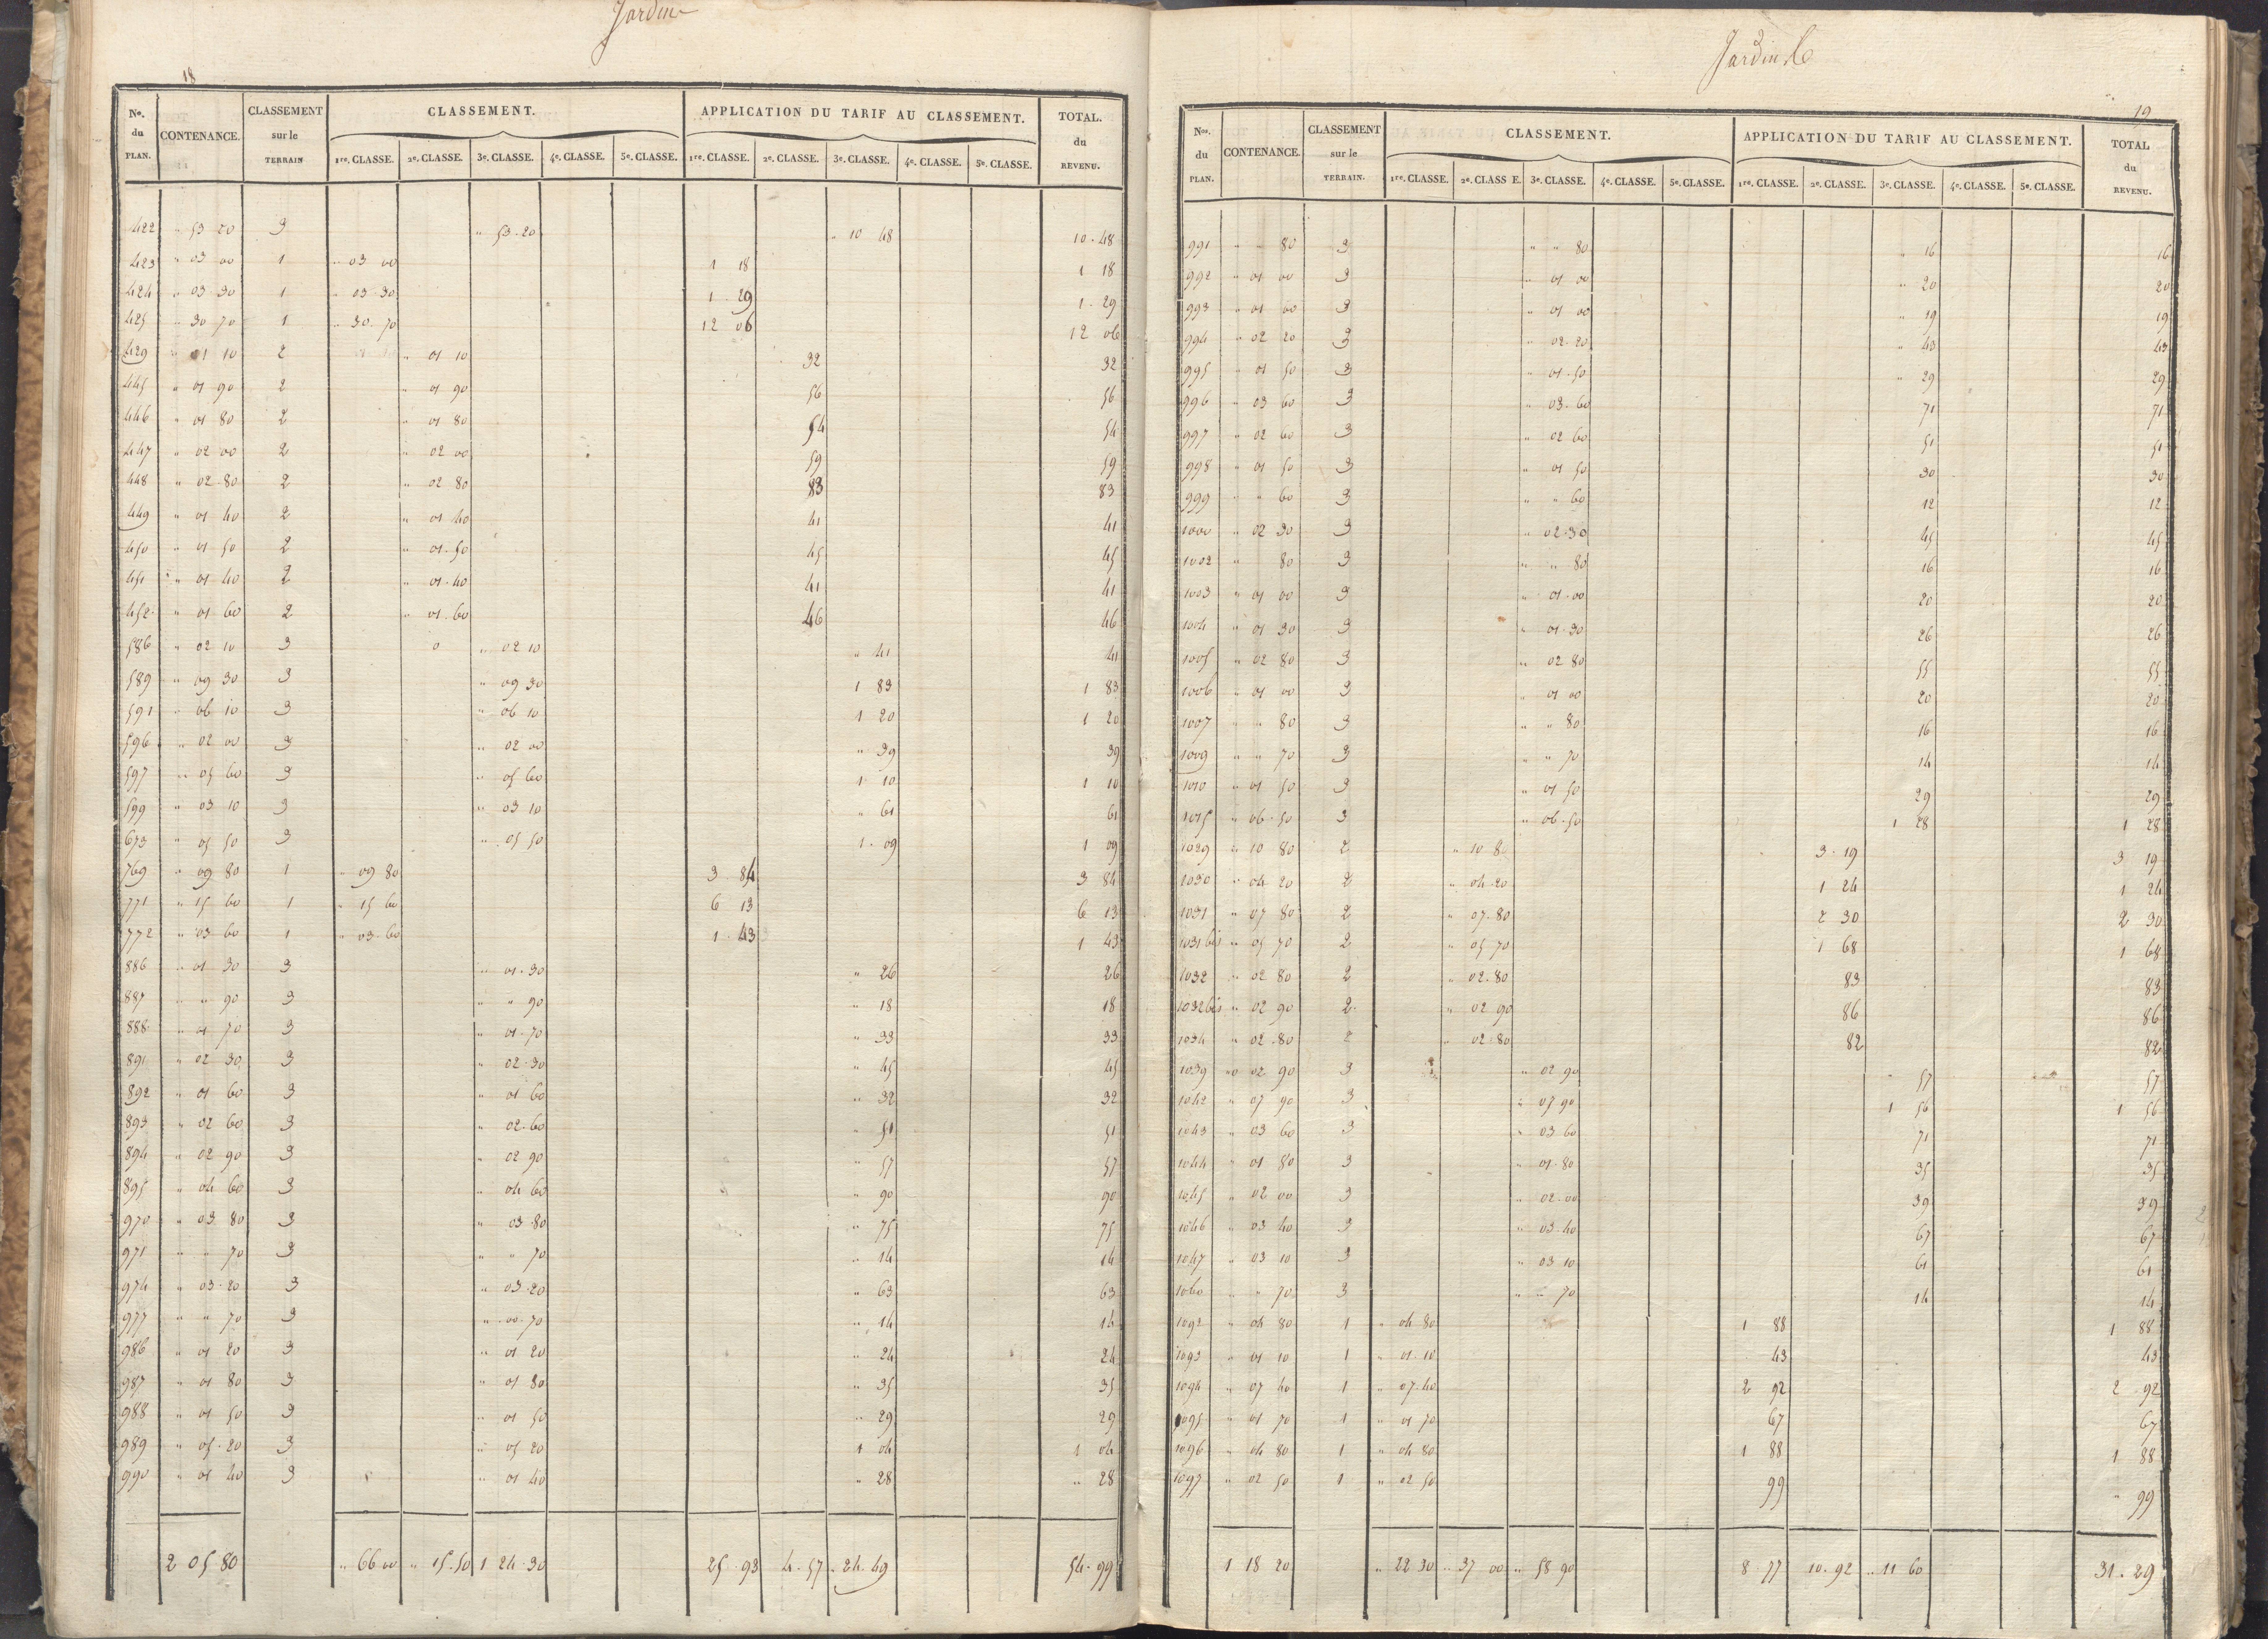 Jardin
18
No. du PLAN. CONTENANCE. CLASSEMENT sur le TERRAIN CLASSEMENT. APPLICATION DU TARIF AU CLASSEMENT. TOTAL. du REVENU.
1re. CLASSE. 2e. CLASSE. 3e. CLASSE. 4e. CLASSE. 5e. CLASSE. 1re. CLASSE. 2e. CLASSE. 3e. CLASSE. 4e. CLASSE. 5e. CLASSE.
422 " 53 20 3 " 53.20 " 10 48 10.48
423 " 03 00 1 " 03 00 1 18 1 18
424 " 03 30 1 " 03.30 1.29 1.29
425 " 30 70 1 " 30.70 12 06 12 06
429 " 01 10 2 " 01 10 32 32
445 " 01 90 2 " 01 90 56 56
446 " 01 80 2 " 01 80 54 54
447 " 02 00 2 " 02 00 59 59
448 " 02 80 2 " 02 80 83 83
449 " 01 40 2 " 01 40 41 41
450 " 01 50 2 " 01.50 45 45
451 " 01 40 2 " 01.40 41 41
452 " 01 60 2 " 01.60 46 46
586 " 02 10 3 0 " 02 10 " 41 41
589 " 09 30 3 " 09 30 1 83 1 83
591 " 06 10 3 " 06 10 1 20 1 20
596 " 02 00 3 " 02 00 " 39 39
597 " 05 60 3 " 05 60 1 10 1 10
599 " 03 10 3 " 03 10 " 61 61
673 " 05 50 3 " 05 50 1.09 1 09
769 " 09 80 1 " 09 80 3.84 3 84
771 " 15 60 1 " 15 60 6 13 6 13
772 " 03 60 1 " 03.60 1.43 1 43
886 " 01 30 3 " 01.30 " 26 26
887 " " 90 3 " " 90 " 18 18
888 " 01 70 3 " 01.70 " 33 33
891 " 02 30 3 " 02.30 " 45 45
892 " 01 60 3 " 01 60 " 32 32
893 " 02 60 3 " 02.60 " 51 51
894 " 02 90 3 " 02 90 " 57 57
895 " 04 60 3 " 04 60 " 90 90
970 " 03 80 3 " 03.80 " 75 75
971 " " 70 3 " " 70 " 14 14
974 " 03.20 3 " 03.20 " 63 63
977 " " 70 3 " 00.70 " 14 14
986 " 01 20 3 " 01 20 " 24 24
987 " 01 80 3 " 01 80 " 35 35
988 " 01 50 3 " 01 50 " 29 29
989 " 05.20 3 " 05 20 1 04 1 04
990 " 01 40 3 " 01 40 " 28 " 28
2 05 80 " 66 00 " 15.50 1 24.30 25.93 4.57 24.49 54.99
Jardin
19
Nos. du PLAN. CONTENANCE. CLASSEMENT sur le TERRAIN. CLASSEMENT. APPLICATION DU TARIF AU CLASSEMENT. TOTAL du REVENU.
1re. CLASSE. 2e. CLASS E. 3e. CLASSE. 4e. CLASSE. 5e. CLASSE. 1re. CLASSE. 2e. CLASSE. 3e. CLASSE. 4e. CLASSE. 5e. CLASSE.
991 " " 80 3 " " 80 " 16 16
992 " 01 00 3 " 01 00 " 20 20
993 " 01 00 3 " 01 00 " 19 19
994 " 02 20 3 " 02.20 " 43 43
995 " 01 50 3 " 01.50 " 29 29
996 " 03 60 3 " 03.60 71 71
997 " 02 60 3 " 02 60 51 51
998 " 01 50 3 " 01 50 30 30
999 " " 60 3 " " 60 12 12
1000 " 02 30 3 " 02.30 45 45
1002 " 80 3 " " 80 16 16
1003 " 01 00 3 " 01.00 20 20
1004 " 01 30 3 " 01.30 26 26
1005 " 02 80 3 " 02 80 55 55
1006 " 01 00 3 " 01 00 20 20
1007 " " 80 3 " " 80 16 16
1009 " " 70 3 " " 70 14 14
1010 " 01 50 3 " 01 50 29 29
1015 " 06.50 3 " 06.50 1 28 1 28
1029 " 10 80 2 " 10 8 3.19 3 19
1030 " 04 20 2 " 04.20 1 24 1 24
1031 " 07 80 2 " 07.80 2 30 2 30
1031 bis " 05 70 2 " 05 70 1 68 1 68
1032 " 02 80 2 " 02.80 83 83
1032 bis " 02 90 2 " 02 90 86 86
1034 " 02.80 2 " 02.80 82 82
1039 " 02 90 3 " 02 90 57 57
1042 " 07 90 3 " 07 90 1 56 1 56
1043 " 03 60 3 " 03 60 71 71
1044 " 01 80 3 " 01.80 35 35
1045 " 02 00 3 " 02.00 39 39
1046 " 03 40 3 " 03.40 67 67
1047 " 03 10 3 " 03 10 61 61
1060 " " 70 3 " " 70 14 14
1092 " 04 80 1 " 04 80 1 88 1 88
1093 " 01 10 1 " 01.10 43 43
1094 " 07 40 1 " 07.40 2 92 2.92
1095 " 01 70 1 " 01 70 67 67
1096 " 04 80 1 " 04 80 1 88 1 88
1097 " 02 50 1 " 02 50 99 " 99
1 18 20 " 22 30 " 37 00 " 58 90 8.77 10.92 " 11 60 31.29